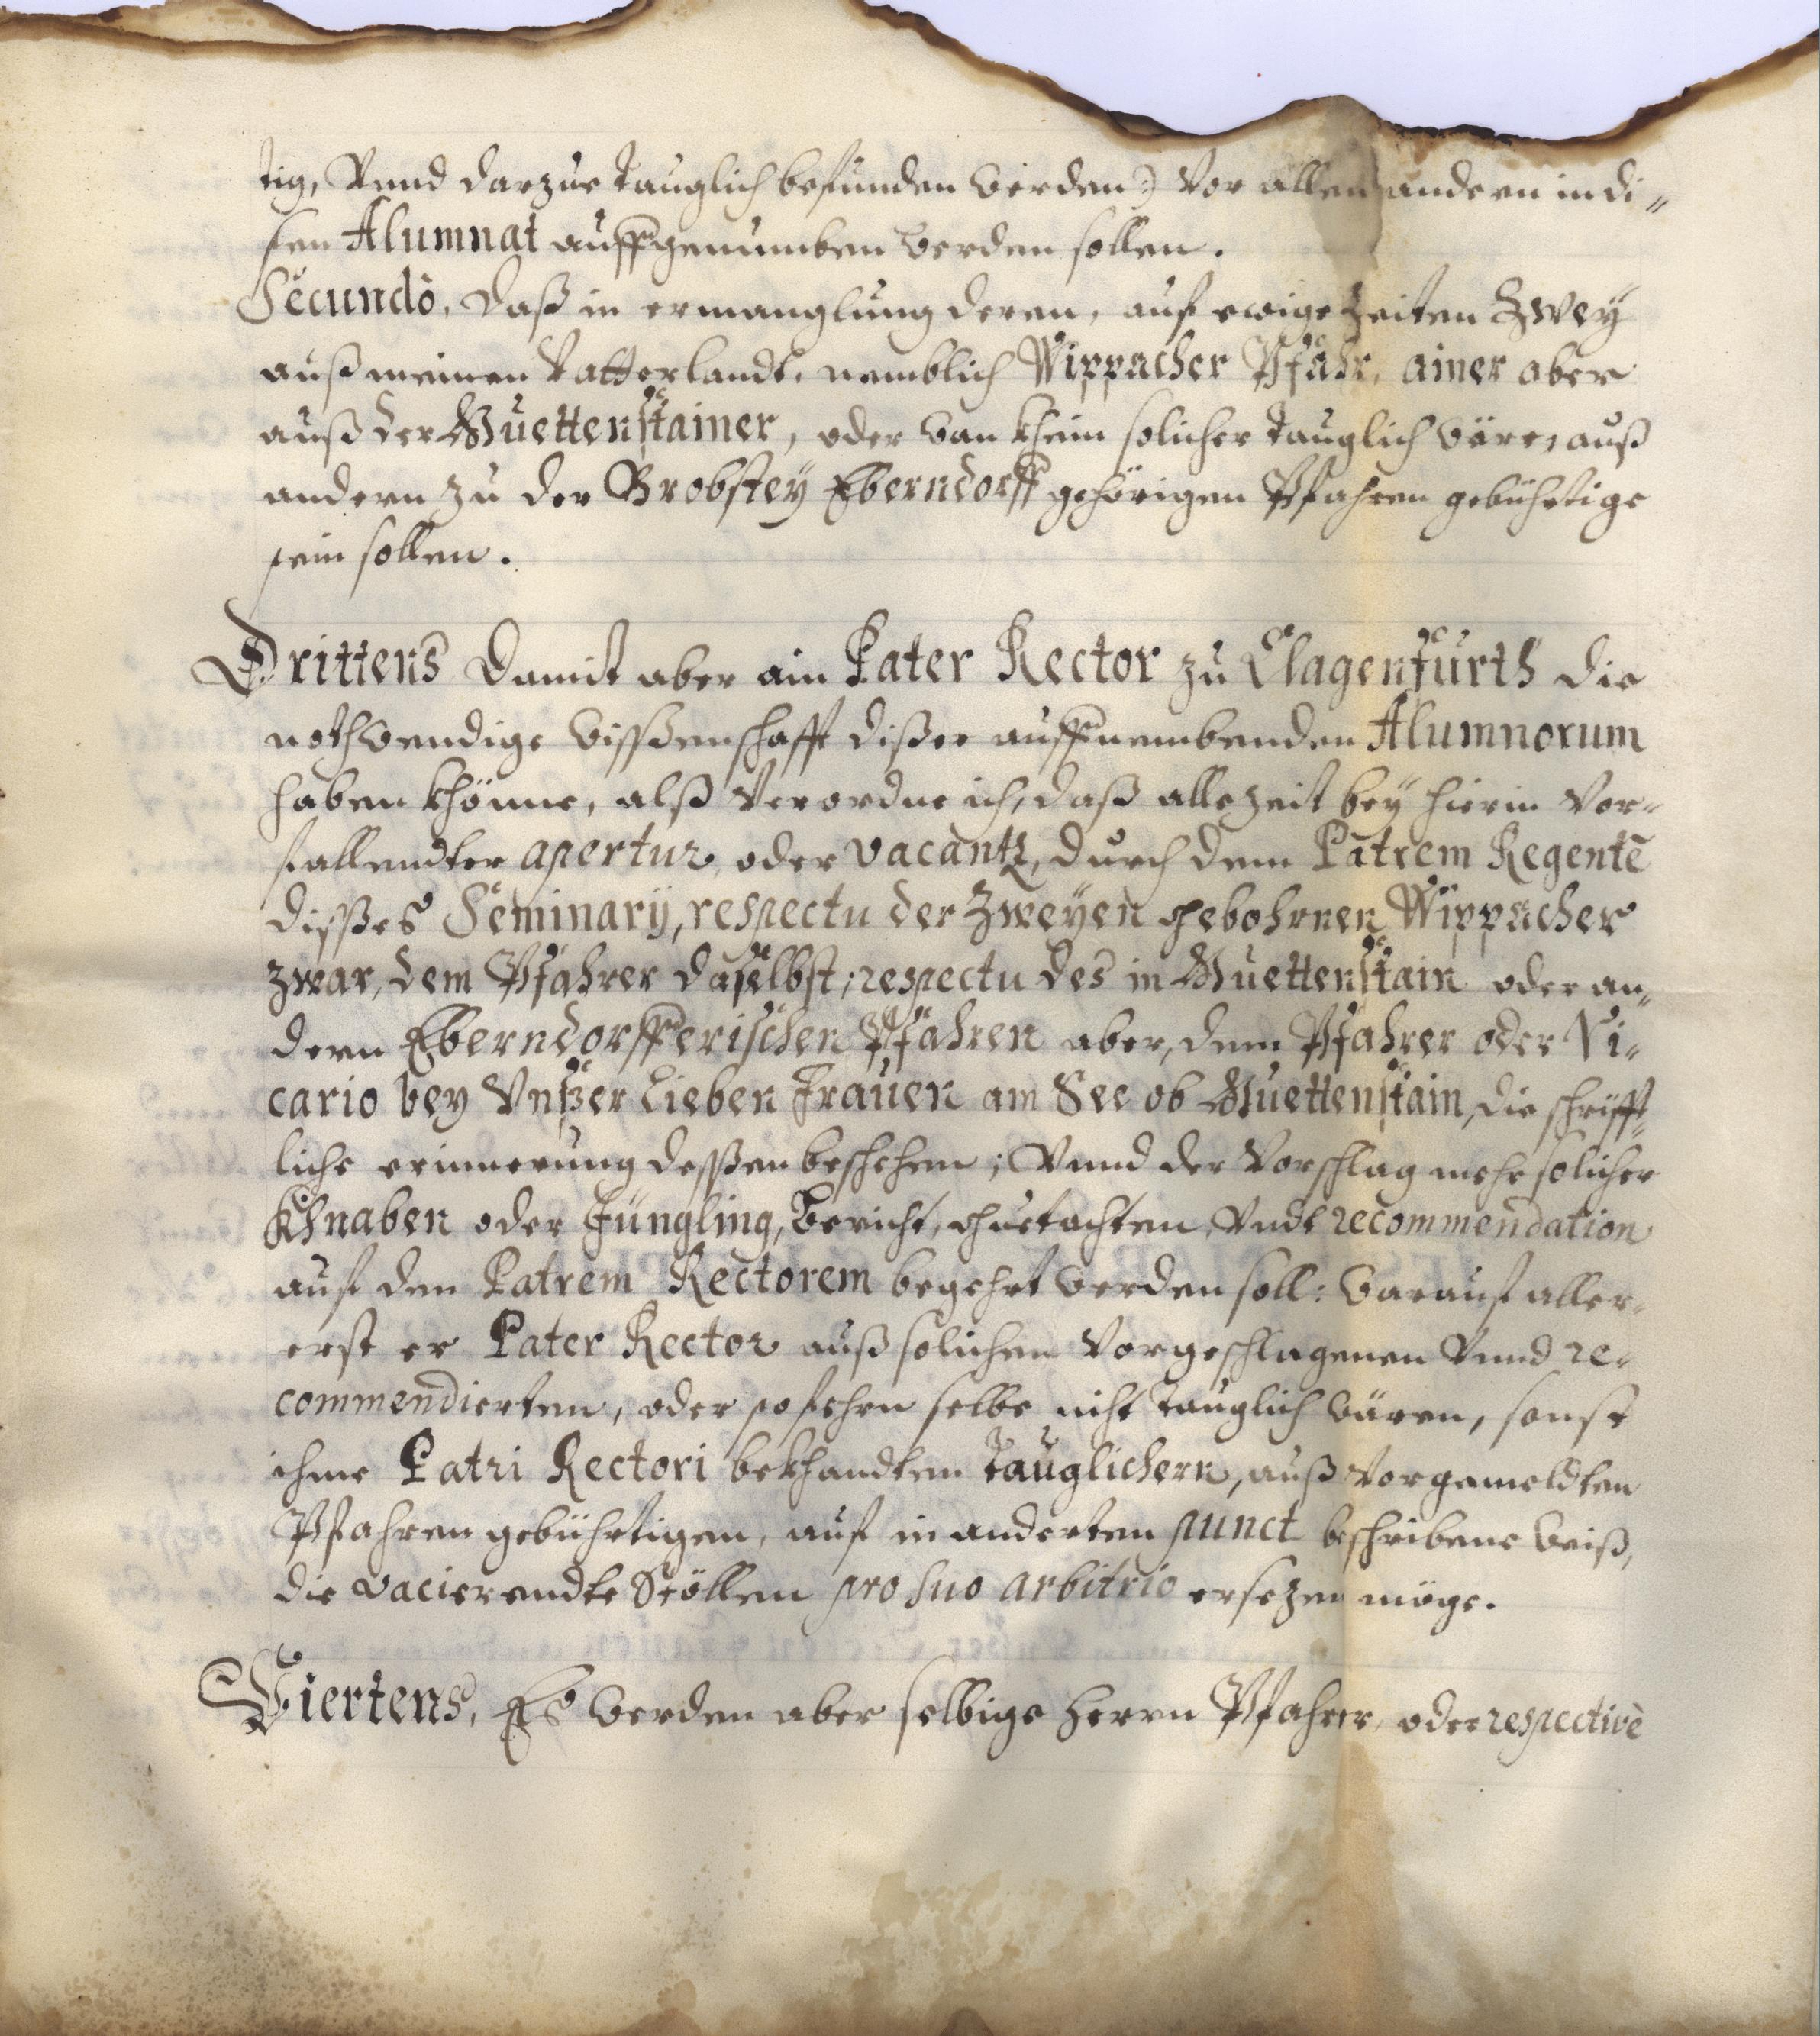 tig, Vnnd darzue tauglich befunden werden) vor allen andern in di-
sen Alumnat auffgenumben werden sollen.
Secundò, daß in ermanglung deren, auf ewige Zeiten Zwey
auß meinen Vatterlandt, nemblich Wippacher Pfahr, ainer aber
auß der Guettenstainer, oder wan khein solicher tauglich wäre, auß
andern zu der Brobstey Eberndorff gehörigen Pfahren gebührtige
sein sollen.
Drittens Damit aber ain Pater Rector zu Clagenfurth die
nothwendige wissenschafft dißer auffnembenden Alumnorum
haben khönne, alß Verordne ich, daß allezeit bey hierin vor-
fallendter apertur, oder vacantz, durch dem Patrem Regentē
dißes Seminarÿ, respectu der Zweyen gebohrnen Wippacher
zwar, dem Pfahrer daselbst; respectu des in Guettenstain oder an-
dern Eberndorfferischen Pfahren aber, dem Pfahrer oder Vi-
cario bey Vnßer Lieben Frauen am See ob Guettenstain, die schrifft-
liche erinnerung deßen beschehen; Vnnd der Vorschlag mehr solicher
Khnaben oder Jüngling, Bericht, guetachten, Vndt recommendation
auf den Patrem Rectorem begehrt werden soll: Warauf aller-
erst er Pater Rector auß solichen Vorgeschlagenen Vnnd re-
commendierten, oder sofehrn selbe nicht tauglich wären, sonst
ihme Patri Rectori bekhandten tauglichern, auß Vorgemeldten
Pfahren gebührtigen, auf in anderten punct beschribene weiß,
die vacierendte Stöllen pro suo arbitrio ersezen möge.
Viertens, Es werden aber selbige Herrn Pfahrer, oder respectivè